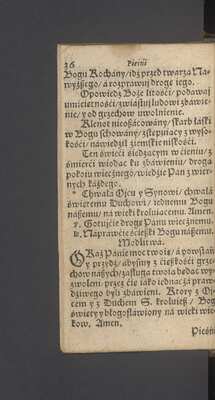 36 Pieśni
Bogu Kochany / idź przed twarzą Na-
wyższego / a rozprawuj drogę iego.
Opowiedz Boże litości / podaway
umieiętności / zwiastuy ludowi zbawie-
nie / y od grzechow uwolnienie.
Kleynot nieoszacowany / skarb łaski
w Bogu schowany / zstępuiący z wyso-
kości / nawiedził ziemskie niskości.
Ten świeci siedzącym w cieniu / z
śmierci wiodąc ku zbawieniu / droga
pokoiu wiecznego / wiedzie Pan z wier-
nych każdego.
* Chwała Oycu y Synowi / chwała
świętemu Duchowi / iednemu Bogu
naszemu / na wieki krolującemu. Amen.
v. Gotuycie drogę Panu wiecznemu.
R. Naprawcie ścieszki Bogu naszemu.
Modlitwa.
OKaż Panie moc twoię / a powstań
y przydź / abysmy z cięszkości grze-
chow naszych / zasługą twoią bydź wy-
zwoleni / przez cię iako iednacza praw-
dziwego byli zbawieni. Ktory z Oy-
cem y z Duchem S. kroluiesz / Bog
święty błogosławiony na wieki wie-
kow, Amen.
Pieśń